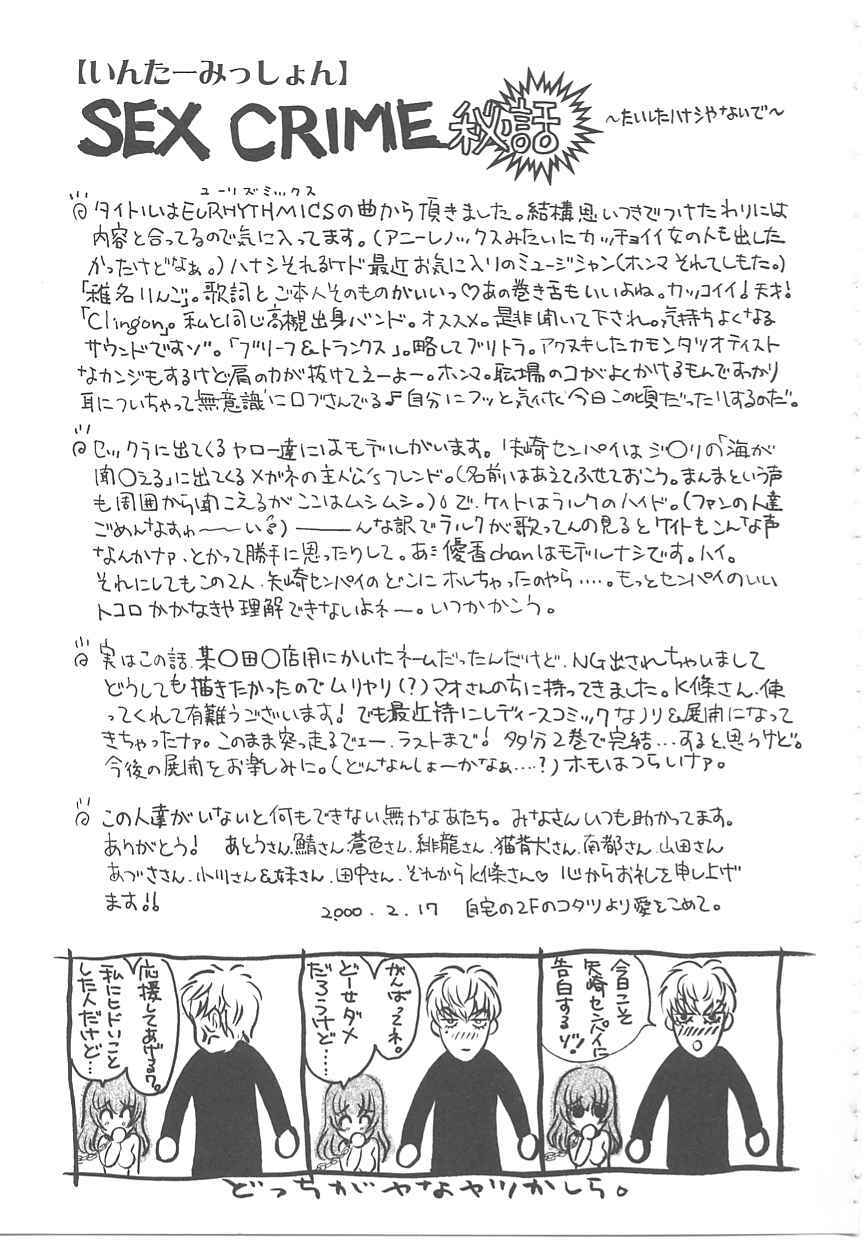 【いんたーみっしょん】
SEX CRIME 秘話 〜たいしたハナシやないで〜
ユーリズミックス
タイトルはEURHYTHMICSの曲から頂きました。結構思いつきでつけたわりには
内容と合ってるので気に入ってます。(アニーレノックスみたいにカッチョイイ女の人も出した
かったけどなぁ。)ハナシそれるケド最近お気に入りのミュージシャン(ホンマそれてしもた。)
「椎名りんご」。歌詞とご本人そのものがいいっ♡あの巻き舌もいいよね。カッコイイ!天才!
「Clingon」。私と同じ高槻出身バンド。オススメ。是非聞いて下され。気持ちよくなる
サウンドですゾ。「ブリーフ&トランクス」。略してブリトラ。アクヌキしたカモンタツオテイスト
なカンジもするけど肩の力が抜けてえーよー。ホンマ。職場のコがよくかけるもんですっかり
耳についちゃって無意識に口ずさんでる♪自分にフッと気付く今日この頃だったりするのだ。
セックラに出てくるヤロー達にはモデルがいます。矢崎センパイはジ〇リの「海が
聞〇える」に出てくるメガネの主人公'sフレンド。(名前はあえてふせておこう。まんまという声
も周囲から聞こえるがここはムシムシ。)で、ケイトはラルクのハイド。(ファンの人達
ごめんなさぁ〜〜い)――んな訳でラルクが歌ってんの見るとケイトもこんな声
なんかナァ、とかって勝手に思ったりして。あ、優香chanはモデルナシです。ハイ。
それにしてもこの2人、矢崎センパイのどこにホレちゃったのやら……。もっとセンパイのいい
トコロかかなきゃ理解できないよネー。いつかかこう。
実はこの話、某〇田〇店用にかいたネームだったんだけど、NG出されちゃいまして
どうしても描きたかったのでムリヤリ(?)マオさんのちに持ってきました。K條さん、使
ってくれて有難うございます!でも最近特にレディースコミックなノリ&展開になって
きちゃったナァ。このまま突っ走るでェー、ラストまで!多分2巻で完結…すると思うけど。
今後の展開をお楽しみに。(どんなんしょーかなぁ…?)ホモはつらいけァ。
この人達がいないと何もできない無力なあたち。みなさんいつも助かってます。
ありがとう! あとうさん、鯖さん、蒼色さん、緋龍さん、猫背犬さん、南都さん、山田さん
あづささん、小川さん&妹さん、田中さん、それからK條さん♡ 心からお礼を申し上げ
ます!!
2000.2.17 自宅の2Fのコタツより愛をこめて。
今日こそ
矢崎センパイに
告白するゾ!
がんばってネ。
どーせダメ
だろうけど…
応援してあげるワ。
私にヒドいこと
した人だけど…
どっちがヤなヤツかしら。